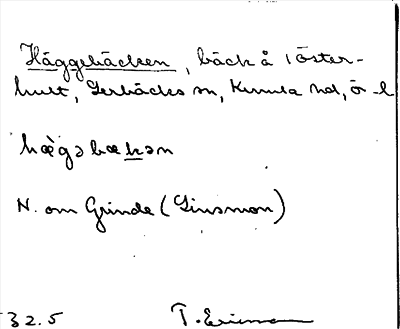 Häggebäcken, bäck å i öster-
hult, Lerbäcks sn, Kumla hd, ö-l
hæ̀gəbækən
N. om Grinde (Linsmon)
32.5 T. Ericsson